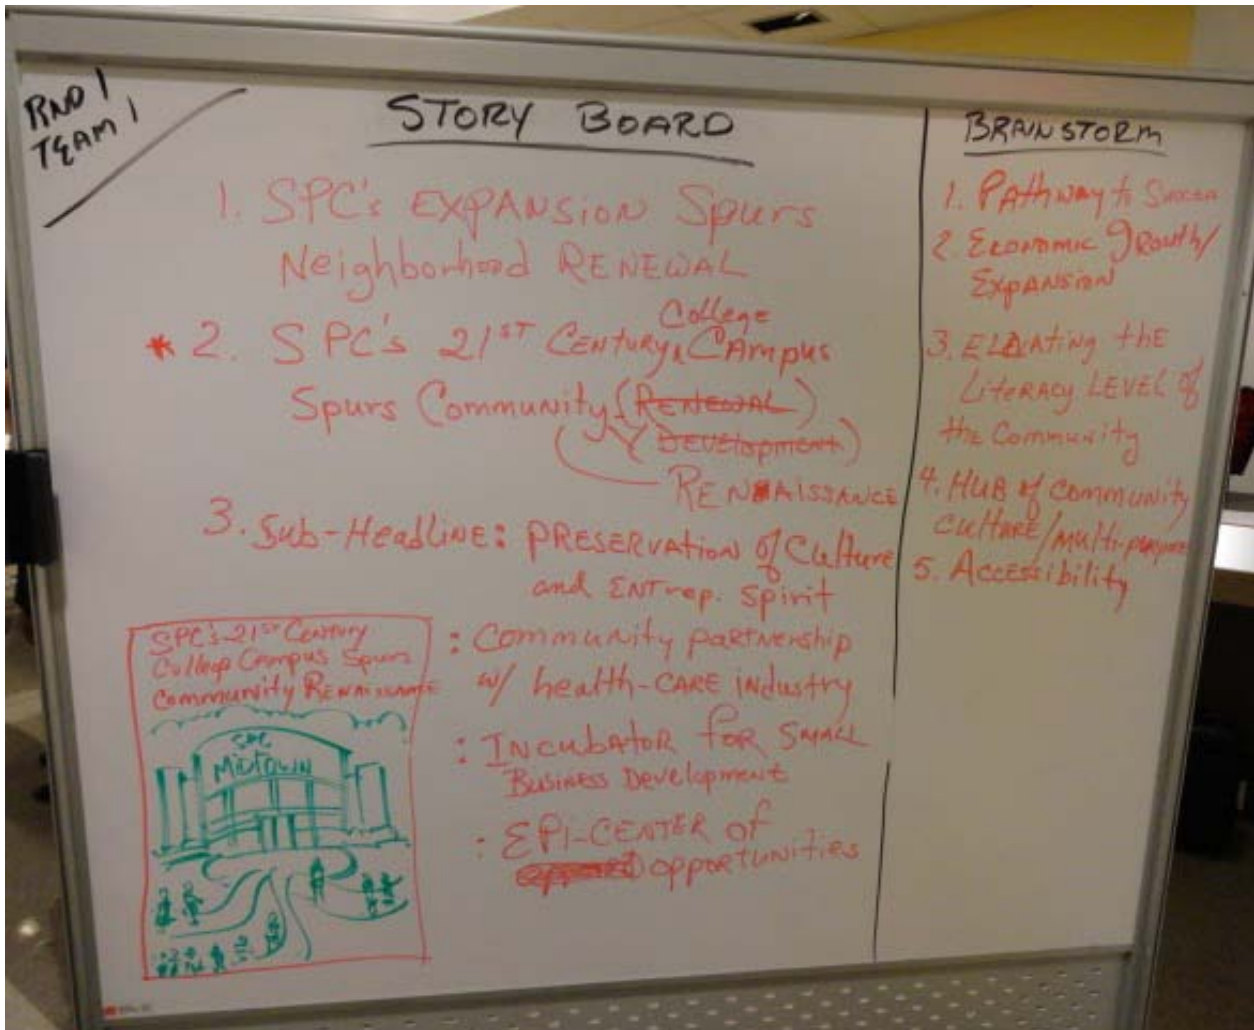 RND 1
TEAM 1
STORY BOARD
1. SPC's EXPANSION Spurs
Neighborhood RENEWAL
* 2. SPC's 21ST CENTURY ^ College CAmpus
Spurs Community (RENEWAL)
(DEVElopment)
RENAISSANCE
3. Sub-Headline: PRESERVATION of Culture
and ENTrep. Spirit
: Community partnership
w/ health-CARE industry
: INCUBATOR for SMALL
Business Development
: EPI-CENTER of
opportunities
SPC's 21ST Century
College Campus Spurs
Community RENAISSANCE
SPC
MIDTOWN
BRAINSTORM
1. PAthway to Success
2. Economic growth/
Expansion
3. the
Literacy LEVEL of
the Community
4. HUB of community
culture/multi-purpose
5. Accessibility